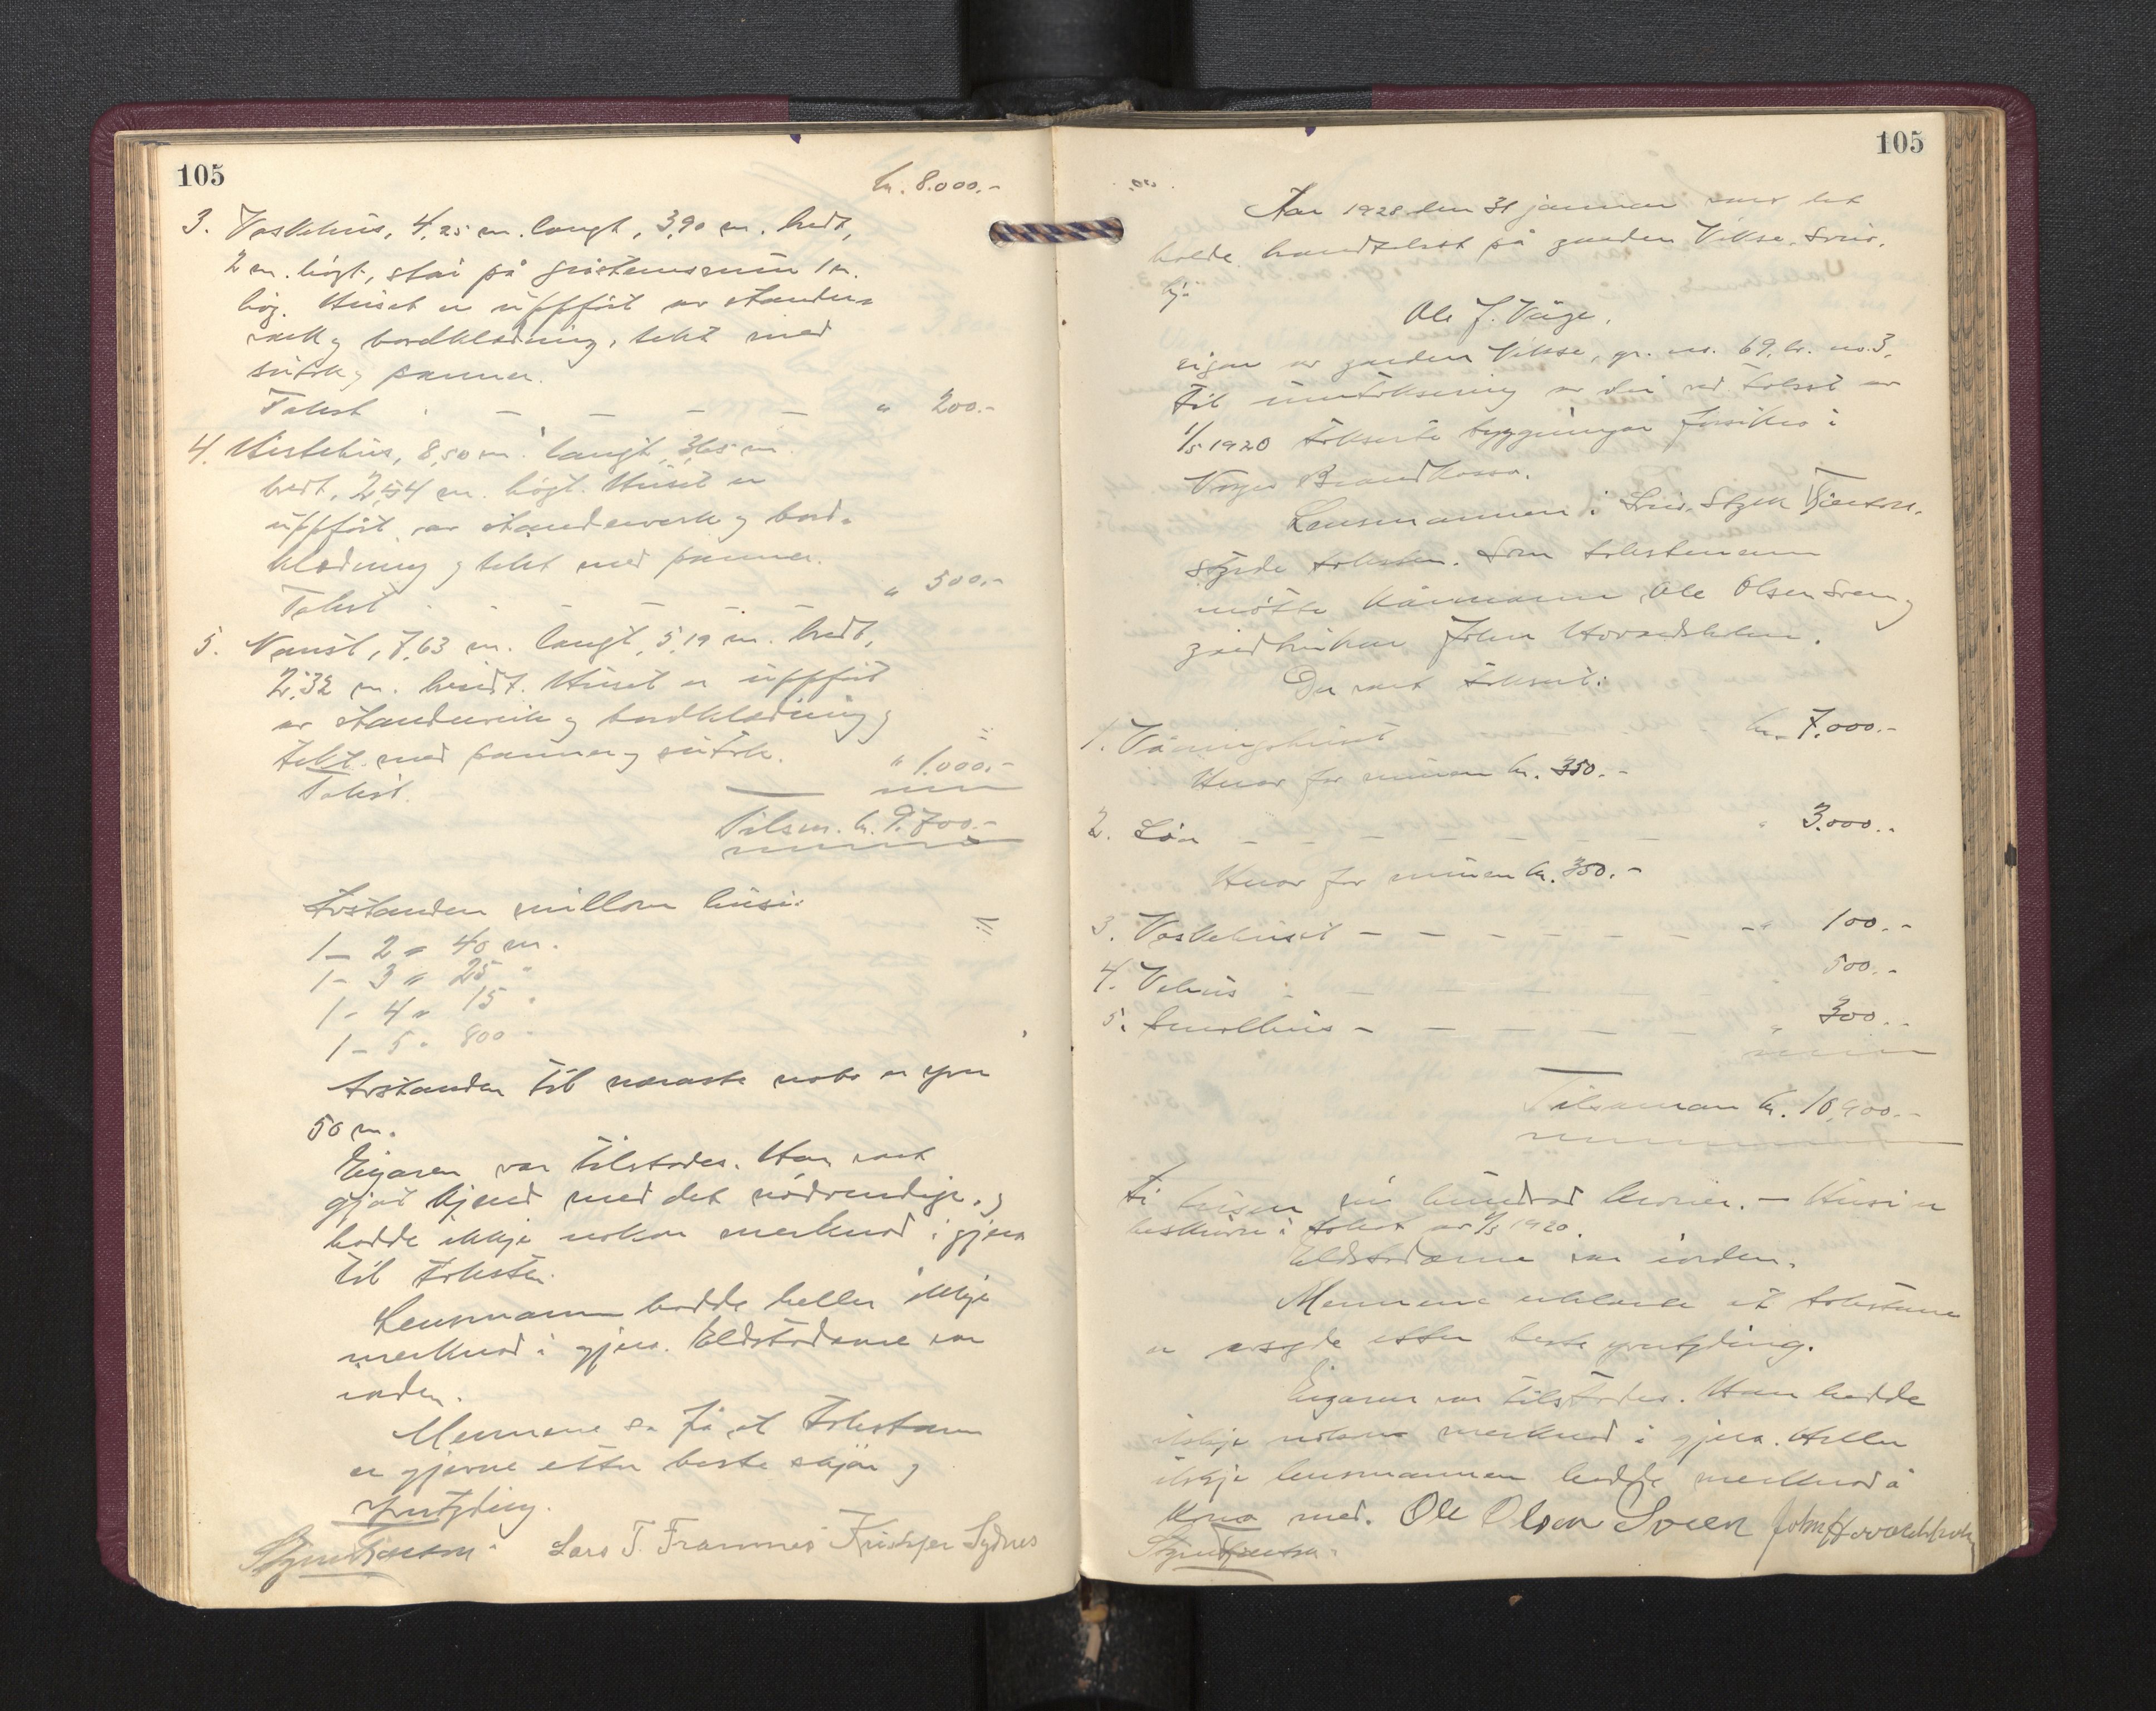 105
kr. 8.000.-
3. Vaskehus, 4,25 m. langt, 3,90 m. bredt,
2 m. högt, står på gråsteinsmur 1 m.
høg. Huset er uppfört av stander-
verk og bordklædning, tekt med
sutak og panner.
Takst - - - - " 200.-
4. Hestehus, 8,50 m. langt, 3,65 m.
bredt, 2,54 m. högt. Huset er
uppfört av standerverk og bord-
klædning og tekt med panner.
Takst - - - - - " 500.-
5. Naust, 7,63 m. langt, 5,19 m. bredt,
2,32 m. Huset er uppfört
av standerverk og bordklædning og
tekt med panner og sutak.
Takst. " 1.000.-
Tilsm. kr. 9.700.-
Avstanden millom husi:
1 - 2 " 40 m.
1 - 3 " 25 "
1 - 4 " 15 "
1 - 5 " 800 "
Avstanden til næraste nabo er yver
50 m.
Eigaren var tilstades. Han vart
gjort kjend med det nödvendige, og
hadde ikkje nokon merknad i gjera
til taksten.
Lensmannen hadde heller ikkje
merknad i gjera. Eldstadene var
iorden.
Mennene sa frå at takstane
er gjevne etter beste skjön og
yvertyding.
Lars T. Framnes Kristofer Sydnes
105
Aar 1928 den 31 januar vart det
halde brandtakst på garden Vikse, Sveio,
hjå
Ole J. Våge,
eigar av garden Vikse, gr. no. 69, br. no. 3,
til umtaksering av dei ved takst av
1/5 1920 takserte bygningar forsikra i
Noregs Brandkassa.
Lensmannen i Sveio,
styrde taksten. Som takstmenn
møtte kårmann Ole Olsen Sveen og
gardbrukar John Hovaldsholm.
Der vart taksert:
1. Våningshuset kr. 7.000.-
Huar for muren kr. 350.-
2. Löa - - - - - - " 3.000.-
Huar for muren kr. 350.-
3. Vaskehuset - - - - - - - " 100.-
4. Vehus - - - - - 500.-
5. Smalhus - - - - - " 300.-
Tilsaman kr. 10.900.-
Ti tusen ni hundrad kronor. - Husi er
beskrivne i takst av 1/5 1920.
Eldstadane var iorden.
Mennene erklærte at takstane
er avsagde etter beste yvertyding.
Eigaren var tilstades. Han hadde
ikkje nokon merknad i gjera. Heller
ikkje lensmannen hadde merknad å
koma med. Ole Olsen Sveen John Hovaldsholm